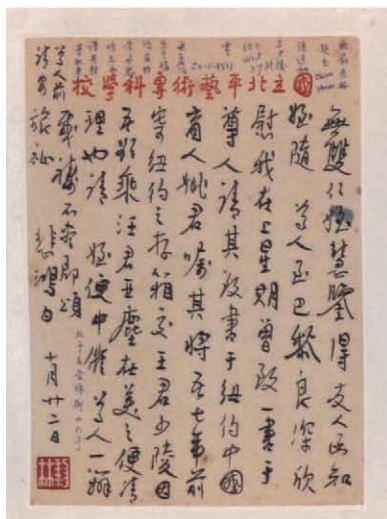 國立北平藝術專科學校
無雙仁姪慧鑒得友人函知
姪隨 尊人至巴黎良深欣
慰我在上星期曾致一書于
尊人請其致書于紐約中國
商人姚君囑其將吾七年前
寄紐約之存箱交王君少陵因
吾欲乘汪君亞塵在美之便清
理也請 姪便中催 尊人一辦
感禱不盡即頌
旅祉 悲鴻白 十月廿二日
尊人前
請安